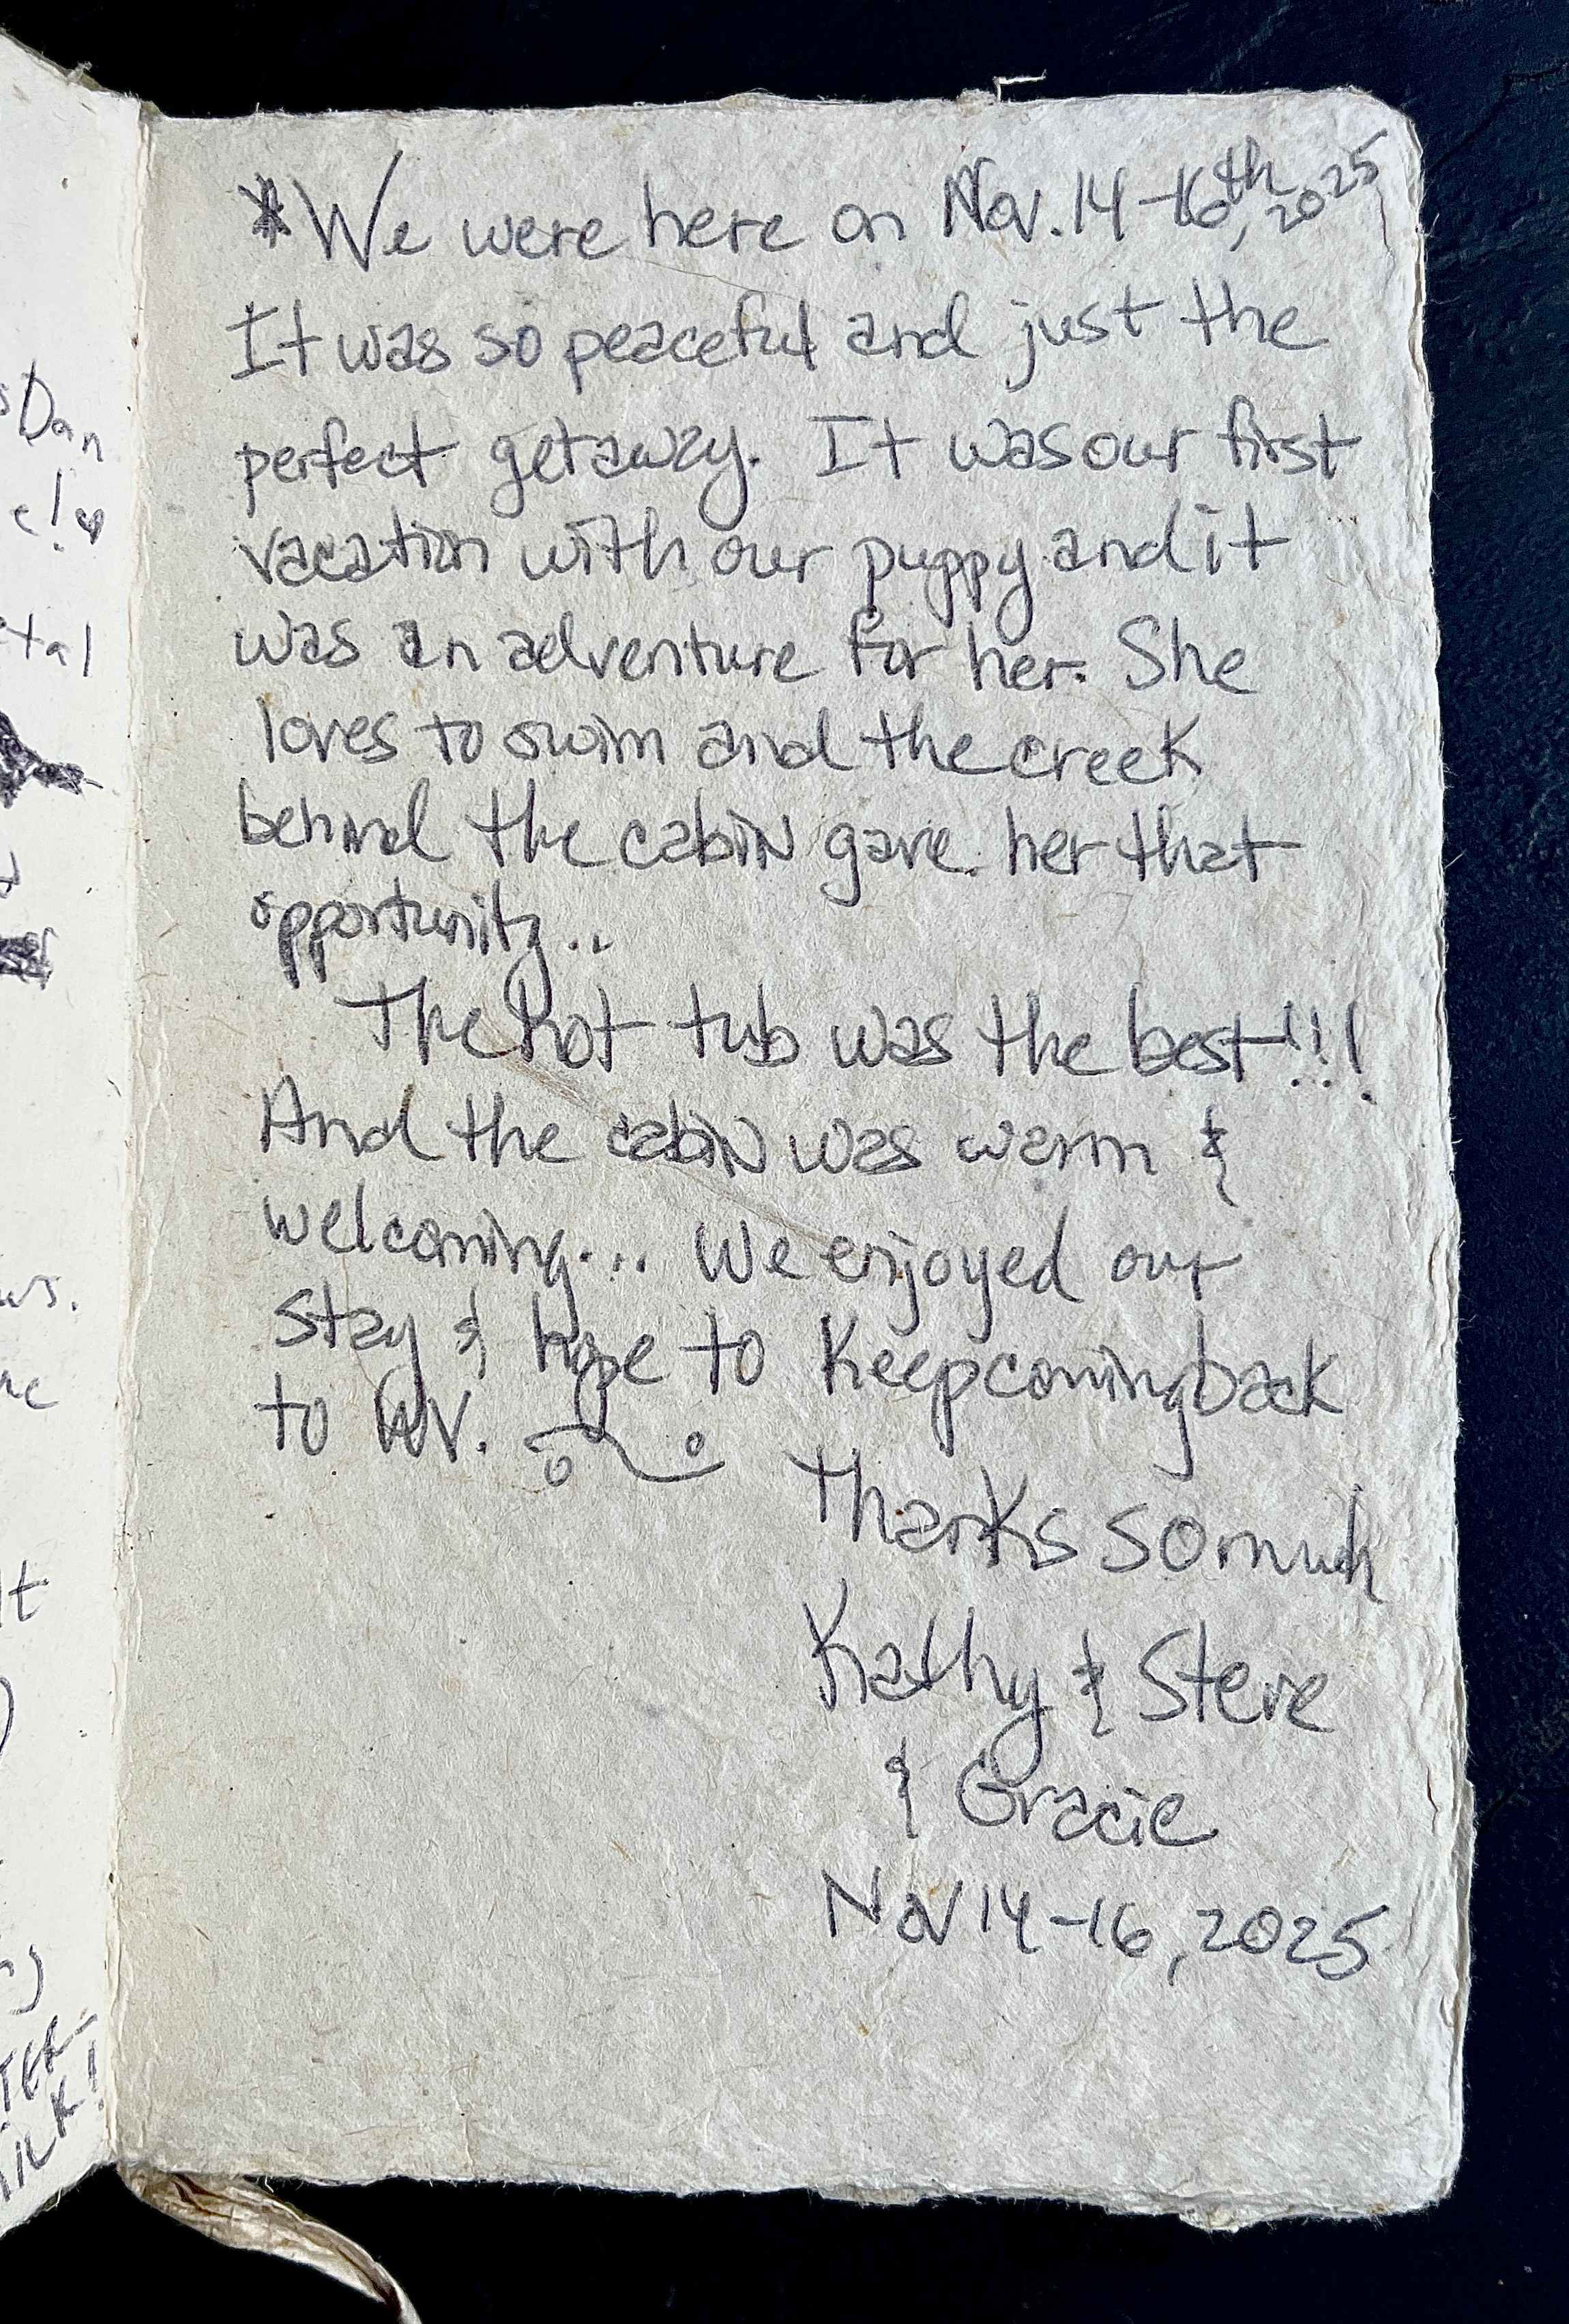 Dan
e!
tal
ws.
*We were here on Nov. 14-16th, 2025
It was so peaceful and just the
perfect getaway. It was our first
vacation with our puppy and it
was an adventure for her. She
loves to swim and the creek
behind the cabin gave her that
opportunity..
The hot tub was the best!!!
And the cabin was warm &
welcoming... We enjoyed our
stay & hope to keep coming back
to WV.
Thanks so much
Kathy & Steve
& Gracie
Nov 14-16, 2025